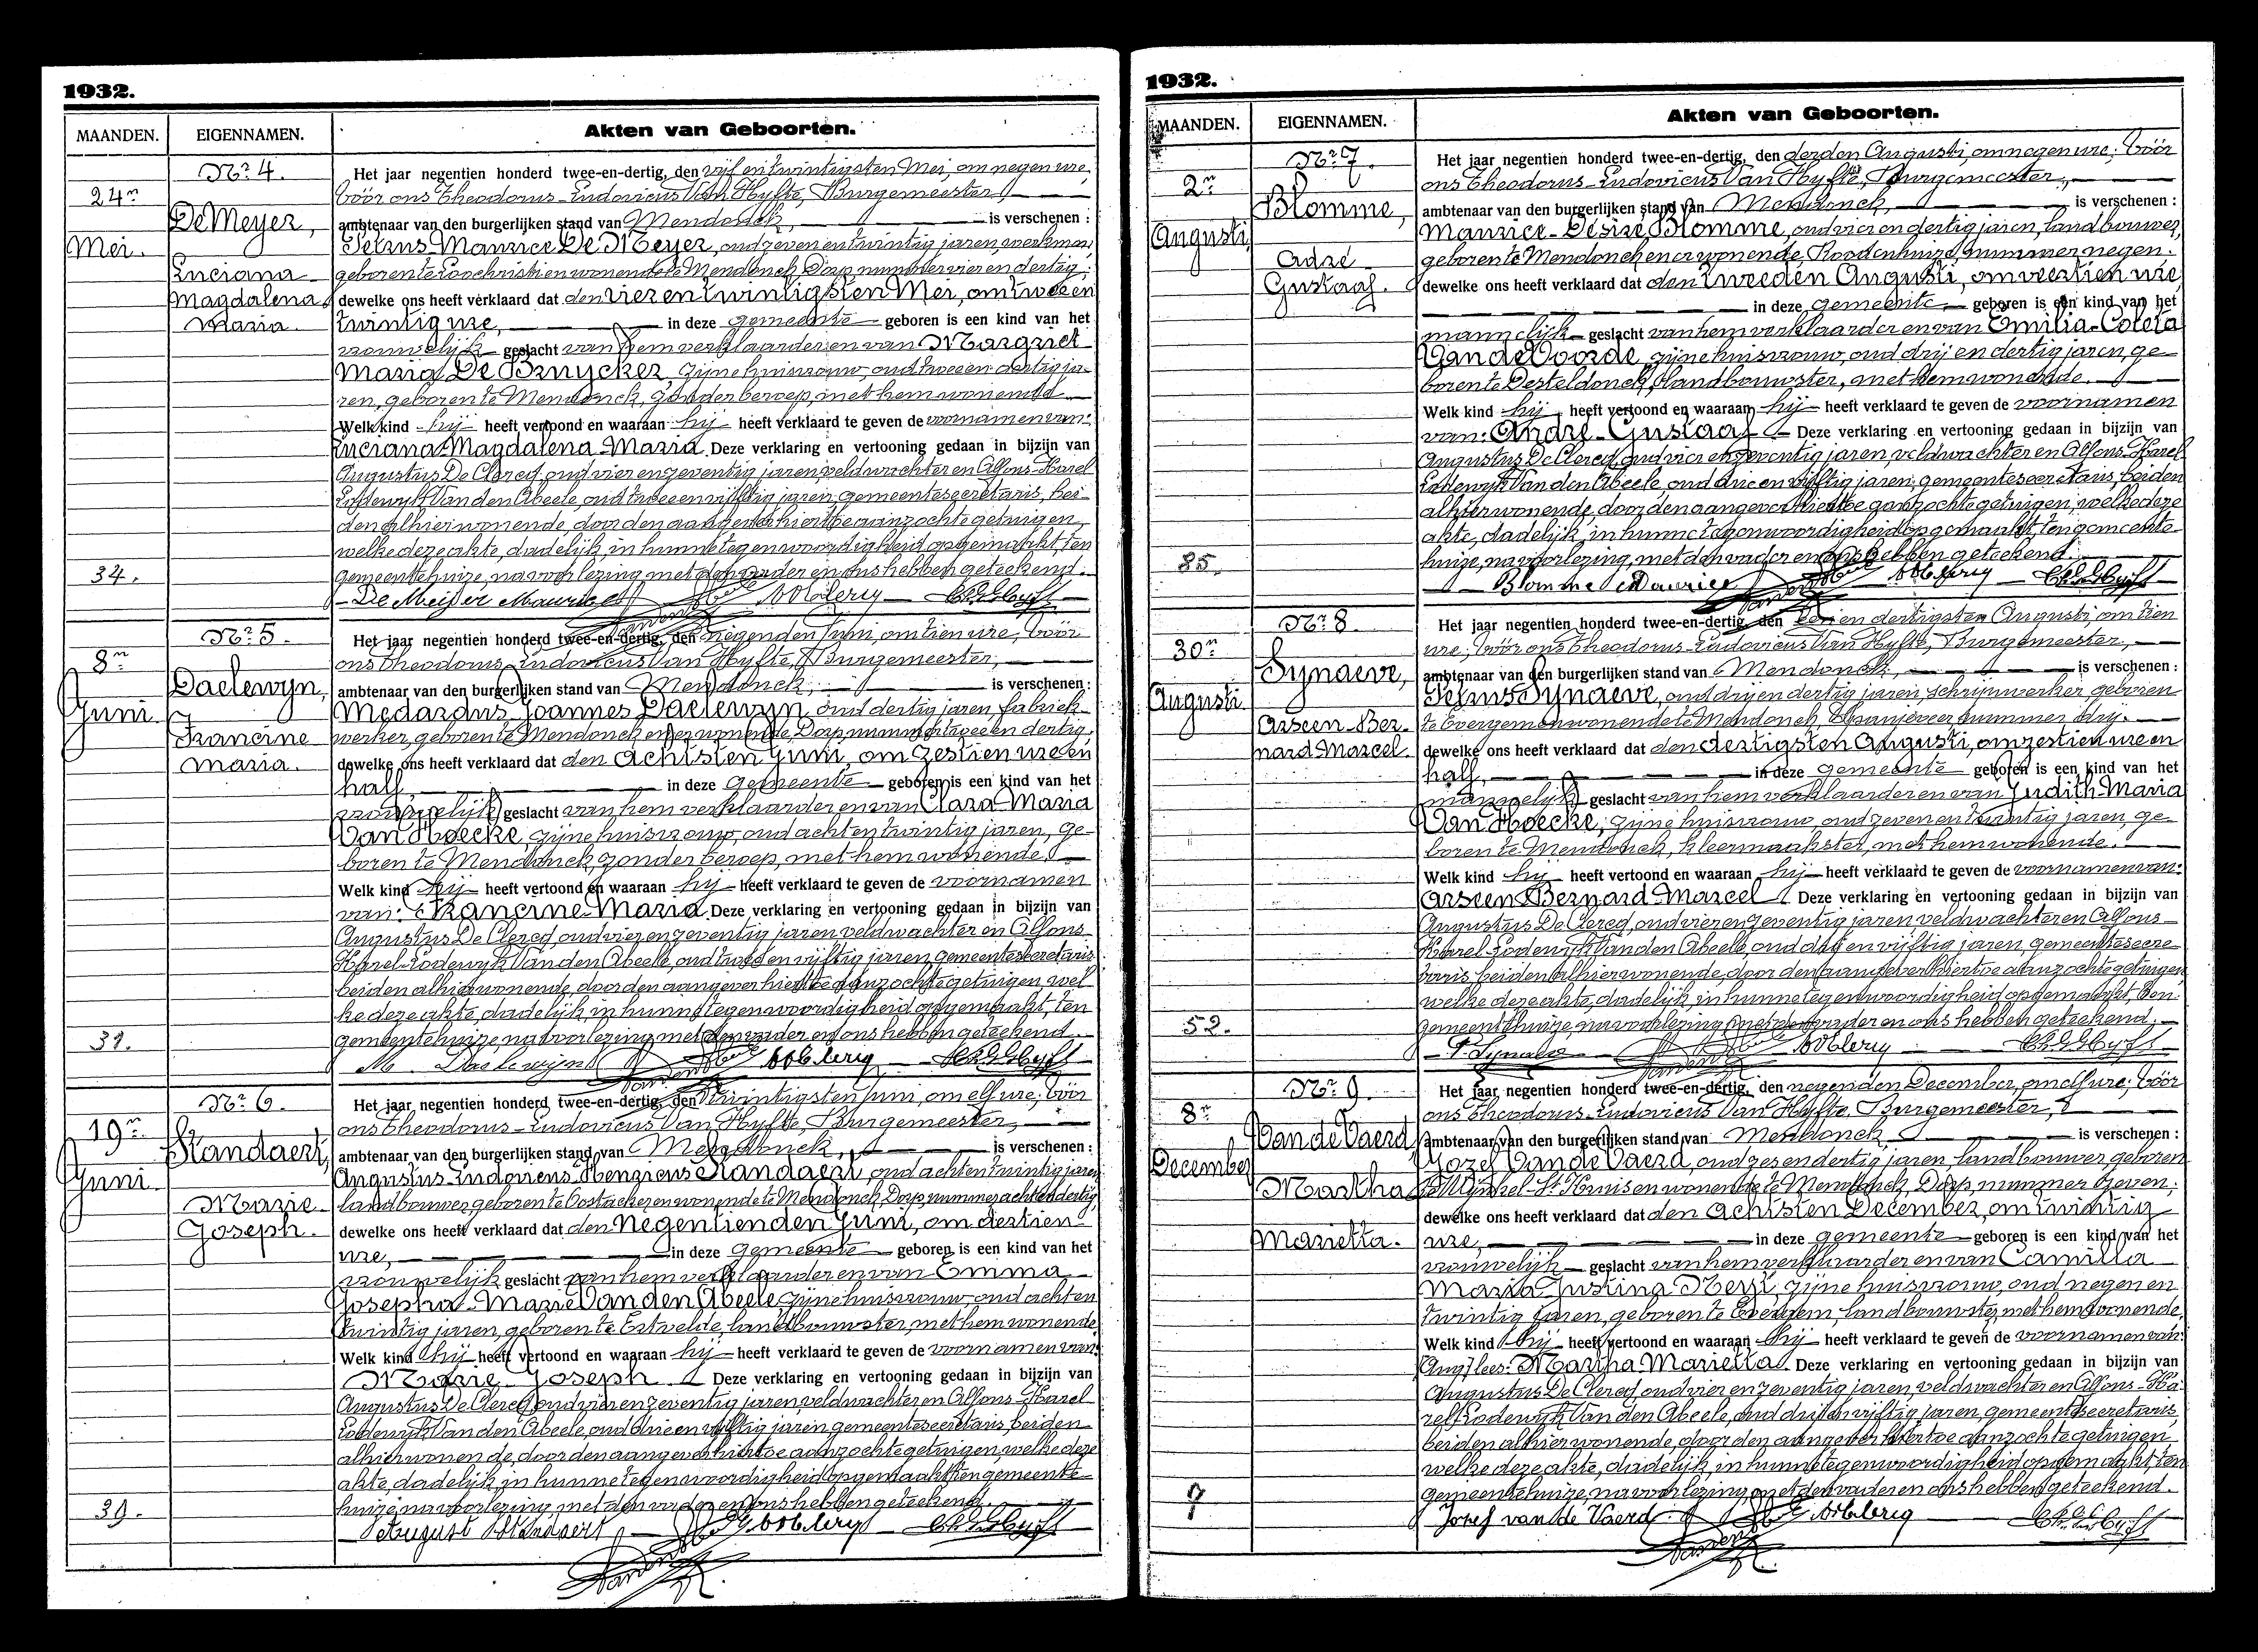 1932.
MAANDEN. EIGENNAMEN. Akten van Geboorten.
Nr. 4.
24n
Mei.
De Meyer,
Luciana
Magdalena
Maria.
34.
Het jaar negentien honderd twee-en-dertig, den vijf en twintigsten Mei, om negen ure,
vóór ons Theodorus-Ludovicus Van Hyfte, Burgemeester,
ambtenaar van den burgerlijken stand van Mendonck, is verschenen :
Petrus Maurice De Meyer, oud zeven en twintig jaren, werkman,
geboren te Loochristi en wonende te Mendonck, Dorp nummer vier en dertig;
dewelke ons heeft verklaard dat den vier en twintigsten Mei, om twee en
twintig ure, in deze gemeente geboren is een kind van het
vrouwelijk geslacht van hem verklaarder en van Margriet
Maria De Bruycker, zijne huisvrouw, oud twee en dertig ja-
ren, geboren te Mendonck, zonder beroep, met hem wonende.
Welk kind hij heeft vertoond en waaraan hij heeft verklaard te geven de voornamen van:
Luciana-Magdalena-Maria. Deze verklaring en vertooning gedaan in bijzijn van
Augustus De Clercq, oud vier en zeventig jaren, veldwachter en Alfons-Karel
Lodewijk Van den Abeele, oud twee en vijftig jaren, gemeentesecretaris, bei-
den alhier wonende, door den aangever hiertoe aanzochte getuigen,
welke deze akte, dadelijk in hunne tegenwoordigheid opgemaakt, ten
gemeentehuize, na voorlezing met den vader en ons hebben geteekend.
De Meijer Maurice
Nr. 5.
8n
Juni
Daelewyn,
Francine
Maria.
Het jaar negentien honderd twee-en-dertig, den negenden Juni, om tien ure, vóór
ons Theodorus-Ludovicus Van Hyfte, Burgemeester,
ambtenaar van den burgerlijken stand van Mendonck, is verschenen :
Medardus Joannes Daelewyn, oud dertig jaren, fabriek-
werker, geboren te Mendonck en er wonende, Dorp nummer twee en dertig,
dewelke ons heeft verklaard dat den achtsten Juni, om zestien ure en
half, in deze gemeente geboren is een kind van het
vrouwelijk geslacht van hem verklaarder en van Clara-Maria
Van Hoecke, zijne huisvrouw, oud acht en twintig jaren, ge-
boren te Mendonck, zonder beroep, met hem wonende.
Welk kind hij heeft vertoond en waaraan hij heeft verklaard te geven de voornamen
van: Francine-Maria. Deze verklaring en vertooning gedaan in bijzijn van
Augustus De Clercq, oud vier en zeventig jaren veldwachter en Alfons-
Karel-Lodewijk Van den Abeele, oud twee en vijftig jaren, gemeentesecretaris
beiden alhier wonende, door den aangever hiertoe aanzochte getuigen, wel
ke deze akte, dadelijk, in hunne tegenwoordigheid opgemaakt, ten
gemeentehuize, na voorlezing met den vader en ons hebben geteekend.
M. Daelewijn
Nr. 6.
19n
Juni
Standaert,
Marie
Joseph.
39.
Het jaar negentien honderd twee-en-dertig, den twintigsten Juni, om elf ure, vóór
ons Theodorus-Ludovicus Van Hyfte, Burgemeester,
ambtenaar van den burgerlijken stand van Mendonck, is verschenen :
Augustus-Ludovicus-Henricus Standaert, oud acht en twintig jaren
landbouwer, geboren te Oostacker en wonende te Mendonck, Dorp nummer acht en dertig,
dewelke ons heeft verklaard dat den negentienden Juni, om dertien
ure, in deze gemeente geboren is een kind van het
vrouwelijk geslacht van hem verklaarder en van Emma
Josepha-Marie Van den Abeele, zijne huisvrouw, oud acht en
twintig jaren, geboren te Ertvelde, landbouwster, met hem wonende.
Welk kind hij heeft vertoond en waaraan hij heeft verklaard te geven de voornamen van:
Marie-Joseph. Deze verklaring en vertooning gedaan in bijzijn van
Augustus De Clercq, oud vier en zeventig jaren, veldwachter en Alfons-Karel
Lodewijk Van den Abeele, oud drie en vijftig jaren, gemeentesecretaris, beiden
alhier wonende, door den aangever hiertoe aanzochte getuigen, welke deze
akte, dadelijk, in hunne tegenwoordigheid opgemaakt ten gemeente-
huize, na voorlezing met den vader en ons hebben geteekend.
August Standaert
1932.
MAANDEN. EIGENNAMEN. Akten van Geboorten.
Nr. 7.
2n
Augusti,
Blomme,
Adré
Gustaaf.
85.
Het jaar negentien honderd twee-en-dertig, den derden Augusti, om negen ure; vóór
ons Theodorus-Ludovicus Van Hyfte, Burgemeester,
ambtenaar van den burgerlijken stand van Mendonck, is verschenen :
Maurice-Désiré Blomme, oud vier en dertig jaren, landbouwer,
geboren te Mendonck en er wonende, Roodenhuize, nummer negen.
dewelke ons heeft verklaard dat den tweeden Augusti, om veertien ure
in deze gemeente geboren is een kind van het
mannelijk geslacht van hem verklaarder en van Emilia-Coleta
Van de Voorde, zijne huisvrouw, oud drij en dertig jaren, ge-
boren te Desteldonck, landbouwster, met hem wonende.
Welk kind hij heeft vertoond en waaraan hij heeft verklaard te geven de voornamen
van: André-Gustaaf. Deze verklaring en vertooning gedaan in bijzijn van
Augustus De Clercq, oud vier en zeventig jaren, veldwachter en Alfons-Karel
Lodewijk Van den Abeele, oud drie en vijftig jaren, gemeentesecretaris, beiden
alhier wonende, door den aangever hiertoe aanzochte getuigen, welke deze
akte, dadelijk, in hunne tegenwoordigheid opgemaakt, ten gemeente-
huize, na voorlezing, met den vader en ons hebben geteekend.
Blomme Maurice
Nr. 8.
30n
Augusti
Synaeve,
Arseen-Ber-
nard Marcel.
52.
Het jaar negentien honderd twee-en-dertig, den een en dertigsten Augusti, om tien
ure; vóór ons Theodorus-Ludovicus Van Hyfte, Burgemeester,
ambtenaar van den burgerlijken stand van Mendonck, is verschenen :
Petrus Synaeve, oud drij en dertig jaren, schrijnwerker, geboren
te Evergem en wonende te Mendonck, Spanjeveer, nummer drij.
dewelke ons heeft verklaard dat den dertigsten Augusti, om zestien ure en
half, in deze gemeente geboren is een kind van het
mannelijk geslacht van hem verklaarder en van Judith-Maria
Van Hoecke, zijne huisvrouw, oud zeven en twintig jaren, ge-
boren te Mendonck, kleermaakster, met hem wonende.
Welk kind hij heeft vertoond en waaraan hij heeft verklaard te geven de voornamen van:
Arseen Bernard-Marcel. Deze verklaring en vertooning gedaan in bijzijn van
Augustus De Clercq, oud vier en zeventig jaren veldwachter en Alfons-
Karel-Lodewijk Van den Abeele, oud drij en vijftig jaren, gemeentesecre-
taris, beiden alhier wonende, door den aangever hiertoe aanzochte getuigen
welke deze akte, dadelijk, in hunne tegenwoordigheid opgemaakt, ten
gemeentehuize, na voorlezing met den vader en ons hebben geteekend.
P. Synaeve
Nr. 9.
8n
December
Van de Vaerd,
Martha
Marietta.
7
Het jaar negentien honderd twee-en-dertig, den negenden December, om elf ure; vóór
ons Theodorus-Ludovicus Van Hyfte, Burgemeester,
ambtenaar van den burgerlijken stand van Mendonck, is verschenen :
Jozef Van de Vaerd, oud zes en dertig jaren, landbouwer, geboren
te Wynkel-St-Kruis en wonende te Mendonck, Dorp, nummer zeven;
dewelke ons heeft verklaard dat den achtsten December, om twintig
ure, in deze gemeente geboren is een kind van het
vrouwelijk geslacht van hem verklaarder en van Camilla
Maria-Justina Neyt, zijne huisvrouw, oud negen en
twintig jaren, geboren te Evergem, landbouwster, met hem wonende.
Welk kind hij heeft vertoond en waaraan hij heeft verklaard te geven de voornamen van:
lees: Martha Marietta. Deze verklaring en vertooning gedaan in bijzijn van
Augustus De Clercq, oud vier en zeventig jaren, veldwachter en Alfons-Ka-
rel-Lodewijk Van den Abeele, oud drij en vijftig jaren, gemeentesecretaris
beiden alhier wonende, door den aangever hiertoe aanzochte getuigen
welke deze akte, dadelijk, in hunne tegenwoordigheid opgemaakt, ten
gemeentehuize, na voorlezing met den vader en ons hebben geteekend.
Jozef van de Vaerd